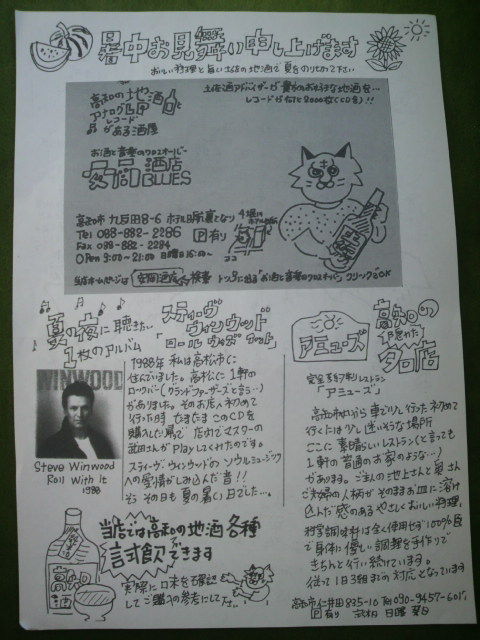 暑中お見舞い申し上げます
おいしい料理と旨い土佐の地酒で夏をのりきって下さい
高知の地酒と
アナログLP
レコード
がある酒屋
土佐酒アドバイザーが貴方のお好きな地酒を…
レコードが何と2000枚(CD含)!!
お酒と音楽のクロスオーバー
安岡酒店
BLUES
高知市 九反田8-6 ホテル 裏となり
Tel 088-882-2286
Fax 088-882-2284
Open 9:00~21:00 日曜日16:00~
P有り
ココ
当店ホームページは 安岡酒店 検索 トップに出る「お酒と音楽のクロスオーバー」クリックでOK
夏の夜に聴きたい
1枚のアルバム
スティーヴ
ウィンウッド
「ロール ウィズ イット」
WINWOOD
Steve Winwood
Roll With It
1988
1988年 私は高松市に
住んでいました。高松に1軒の
ロックバー(グランドファーザーズと言う…)
がありました。そのお店へ初めて
行った時 たまたま このCDを
購入した為で 店内でマスターの
さんがPlayしてくれたのです。
スティーヴ・ウィンウッドのソウルミュージック
への愛情がしみ込んだ音!!
そう その日も夏の暑い日でした…。
高知の
隠れた
名店
アミューズ
完全予約制レストラン
「アミューズ」
高知市内から 車で少し行った 初めて
行くには少し迷いそうな場所
ここに 素晴しいレストラン(と言っても
1軒の普通のお家のような…)
があります。ご主人の池上さんと奥さん
ご夫婦の人柄がそのままお皿に溶け
込んだ感のある やさしくおいしい料理。
科学調味料は全く使用せず100%
で身体に優しい調理を手作りで
きちんと行い続けています。
従って1日3組までの対応となっています
高知市仁井田835-10 Tel 090-9457-6011
P有り 定休日 日曜 祭日
当店では高知の地酒各種
試飲できます
実際に口味を確認
してご購入の参考にして下さい。
高知
酒